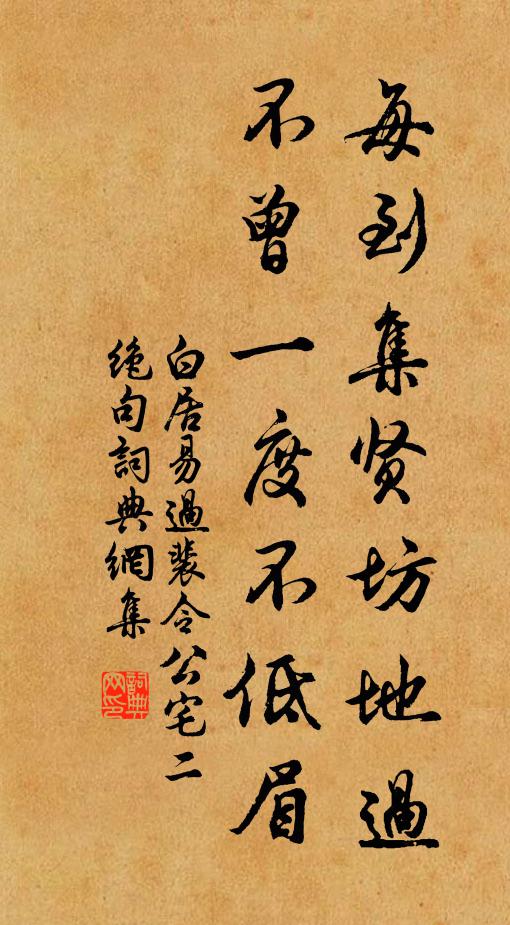 每到集贤坊地過
不曾一度不低眉
白居易過裴令公宅二
绝句詞典網集
詞典网印